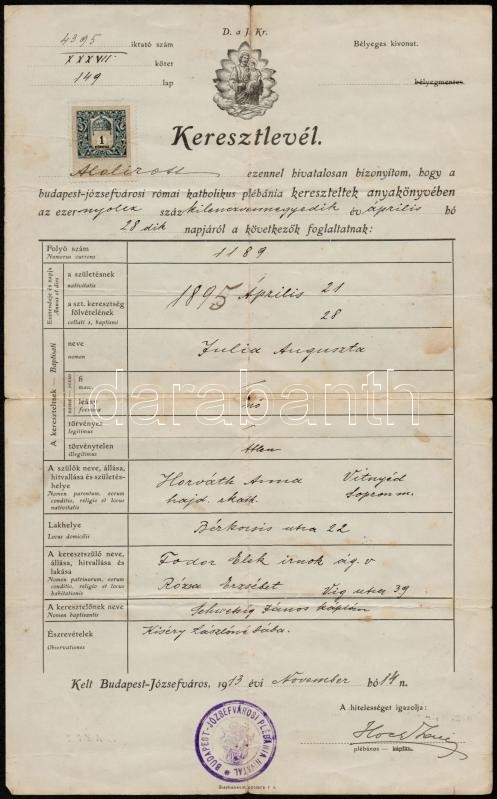 D. a J. Kr.
4395 iktató szám
Bélyeges kivonat.
XXXVII. kötet
149 lap
bélyegmentes.
1
Keresztlevél.
Alulírott ezennel hivatalosan bizonyítom, hogy a
budapest-józsefvárosi római katholikus plébánia kereszteltek anyakönyvében
az ezernyolcz száz kilenczvennegyedik év április hó
28 dik napjáról a következők foglaltatnak:
Folyó szám
Numerus currens
1189
Esztendeje és napja
Annus et dies
a születésnek
nativitatis
1895 Április 21
a szt. keresztség
fölvételének
collati s. baptismi
28
A kereszteltnek — Baptisati
neve
nomen
Julia Auguszta
fi
masc.
leány
nő
törvényes
legitimus
törvénytelen
illegitimus
ttlen
A szülők neve, állása,
hitvallása és születés-
helye
Nomen parentum, eorum
conditio, religio et locus
nativitatis
Horváth Anna Vitnyéd
hajd. rkath. Sopron m.
Lakhelye
Locus domicilii
Bérkocsis utca 22
A keresztszülő neve,
állása, hitvallása és
lakása
Nomen patrinorum, eorum
conditio, religio et locus
habitationis
Fodor Elek írnok ág. v
Rózsa Erzsébet Víg utca 39
A keresztelőnek neve
Nomen baptisantis
János káplán
Észrevételek
Observationes
Kiséry Lászlóné bába.
Kelt Budapest-Józsefváros, 1913 évi November hó 14 n.
A hitelességet igazolja:
BUDAPEST-JÓZSEFVÁROSI PLÉBÁNIA HIVATAL
plébános káplán.
darabanth